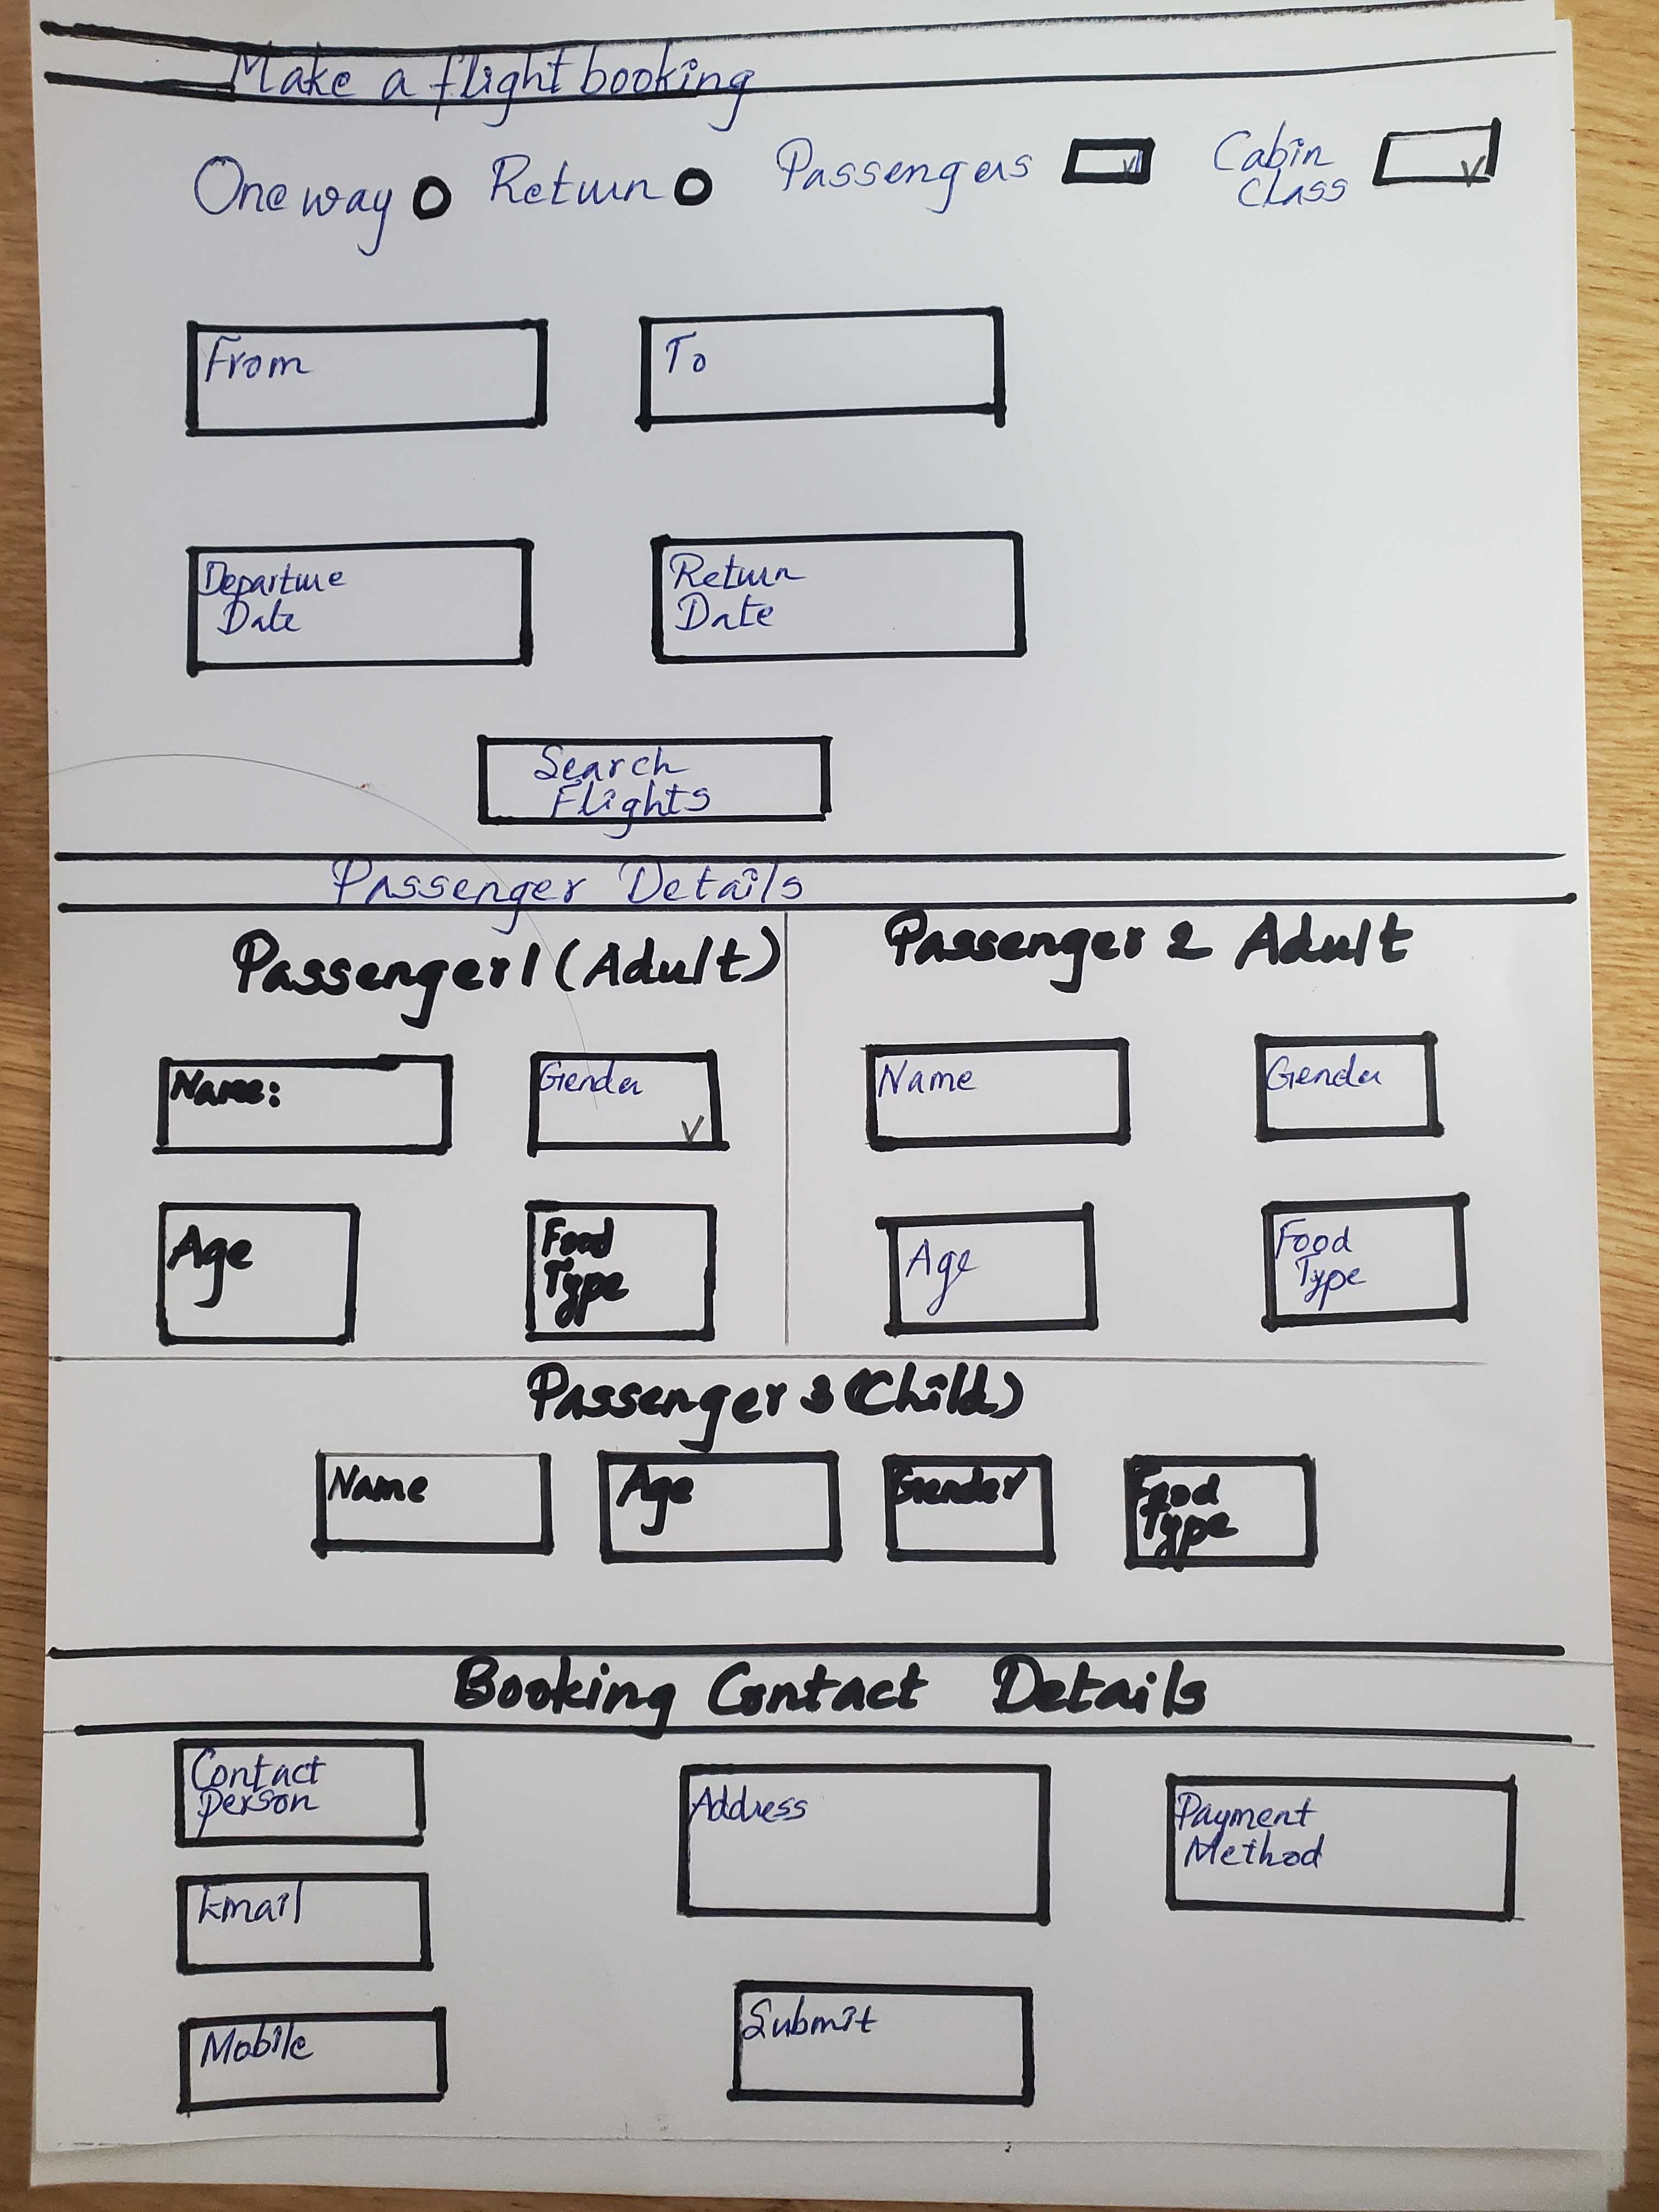 Make a flight booking
One way Return Passengers Cabin
Class
From To
Departure Return
Date Date
Search
Flights
Passenger Details
Passenger 1 (Adult) Passenger 2 Adult
Name: Gender Name Gender
Age Food
Type Age Food
Type
Passenger 3 (Child)
Name Age Gender Food
Type
Booking Contact Details
Contact
person
Address
Payment
Method
Email
Mobile
Submit